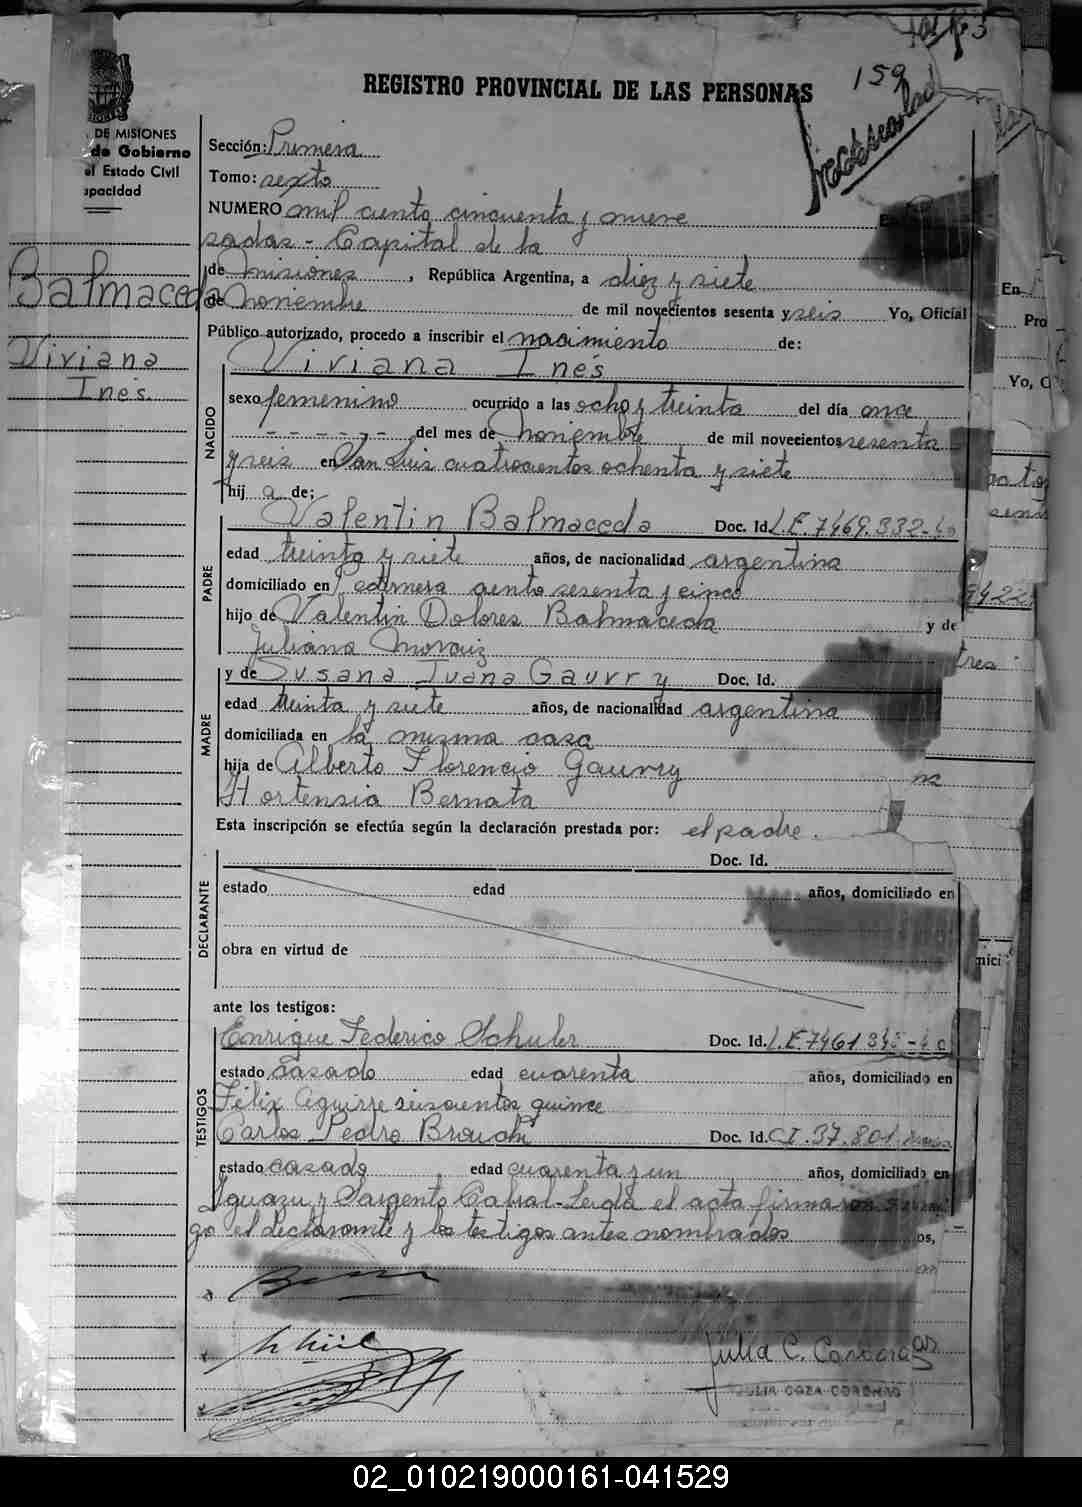 159
REGISTRO PROVINCIAL DE LAS PERSONAS
DE MISIONES
de Gobierno
el Estado Civil
apacidad
Sección: Primera
Tomo: sexto
NUMERO mil ciento cincuenta y nueve
sadas - Capital de la
de Misiones, República Argentina, a diez y siete
de Noviembre de mil novecientos sesenta y seis Yo, Oficial
Público autorizado, procedo a inscribir el nacimiento de:
Balmaceda
Viviana
Inés.
NACIDO
Viviana Inés
sexo femenino ocurrido a las ocho y treinta del día once
------ del mes de Noviembre de mil novecientos sesenta
y seis en San Luis cuatrocientos ochenta y siete
hij a de;
PADRE
Valentin Balmaceda Doc. Id. L.E. 7469.332-
edad treinta y siete años, de nacionalidad argentina
domiciliado en Pedernera ciento sesenta y cinco
hijo de Valentin Dolores Balmaceda y de
Juliana
MADRE
y de Susana Juana Gauvry Doc. Id.
edad treinta y siete años, de nacionalidad argentina
domiciliada en la misma casa
hija de Alberto Florencio Gauvry
Hortensia Bernata
Esta inscripción se efectúa según la declaración prestada por: el padre.
DECLARANTE
Doc. Id.
estado edad años, domiciliado en
obra en virtud de
ante los testigos:
TESTIGOS
Enrique Federico Schuler Doc. Id. L.E. 7461
estado casado edad cuarenta años, domiciliado en
Félix Aguirre seiscientos quince
Carlos Pedro Doc. Id. C.I. 37.801
estado casado edad cuarenta y un años, domiciliado en
Iguazu y Sargento Cabral - Leida el acta firmaron
go el declarante y los testigos antes nombrados
Julia C.
JULIA COZA
En
Pro
Yo, O
02_010219000161-041529